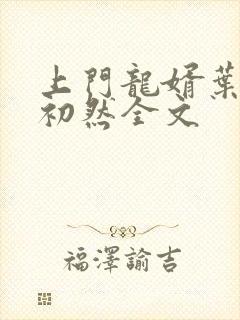 上門龍婿葉
初然全文
福澤諭吉